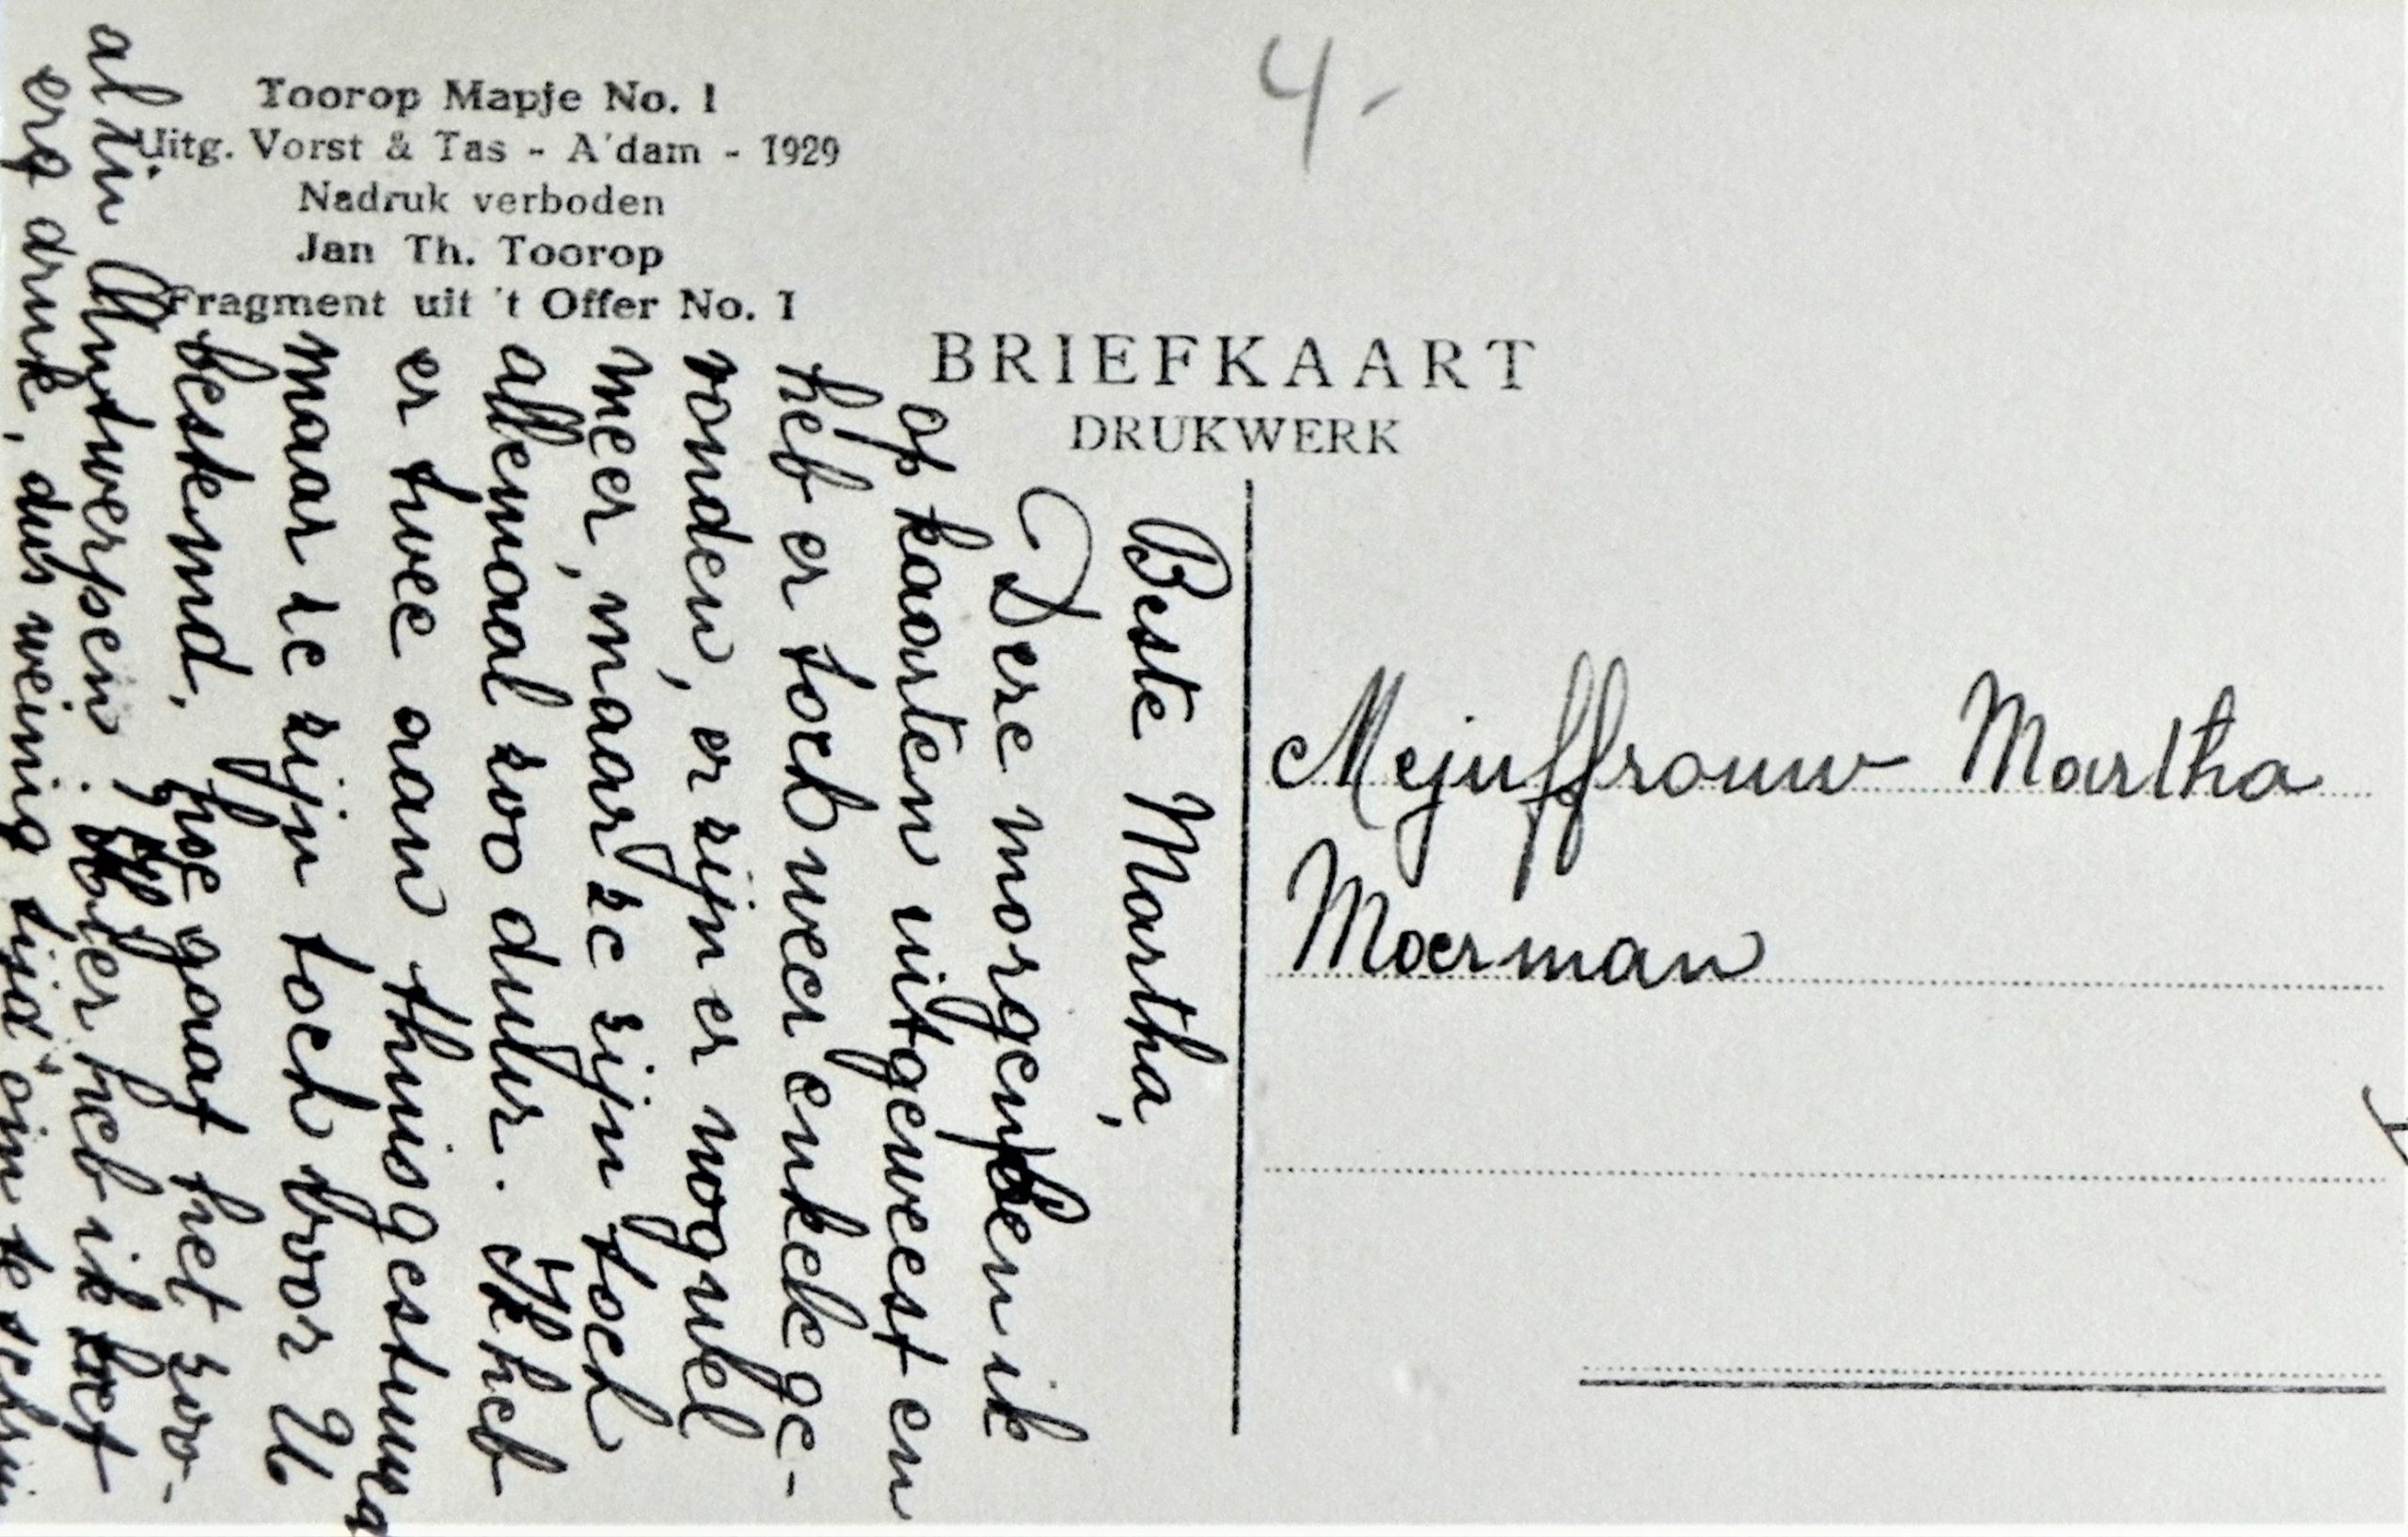 Toorop Mapje No. 1
Uitg. Vorst & Tas - A'dam - 1929
Nadruk verboden
Jan Th. Toorop
Fragment uit 't Offer No. 1
4-
BRIEFKAART
DRUKWERK
Beste Martha,
Deze morgen ben ik
op kaarten uitgeweest en
heb er toch weer enkele ge-
vonden, er zijn er nog wel
meer, maar ze zijn toch
allemaal zoo duur. Ik heb
er twee aan thuisgestuurd
maar ze zijn toch voor U
bestemd. hoe gaat het zoo-
al in Antwerpen. Hier heb ik het
erg druk, dus weinig tijd om te
Mejuffrouw Martha
Moerman